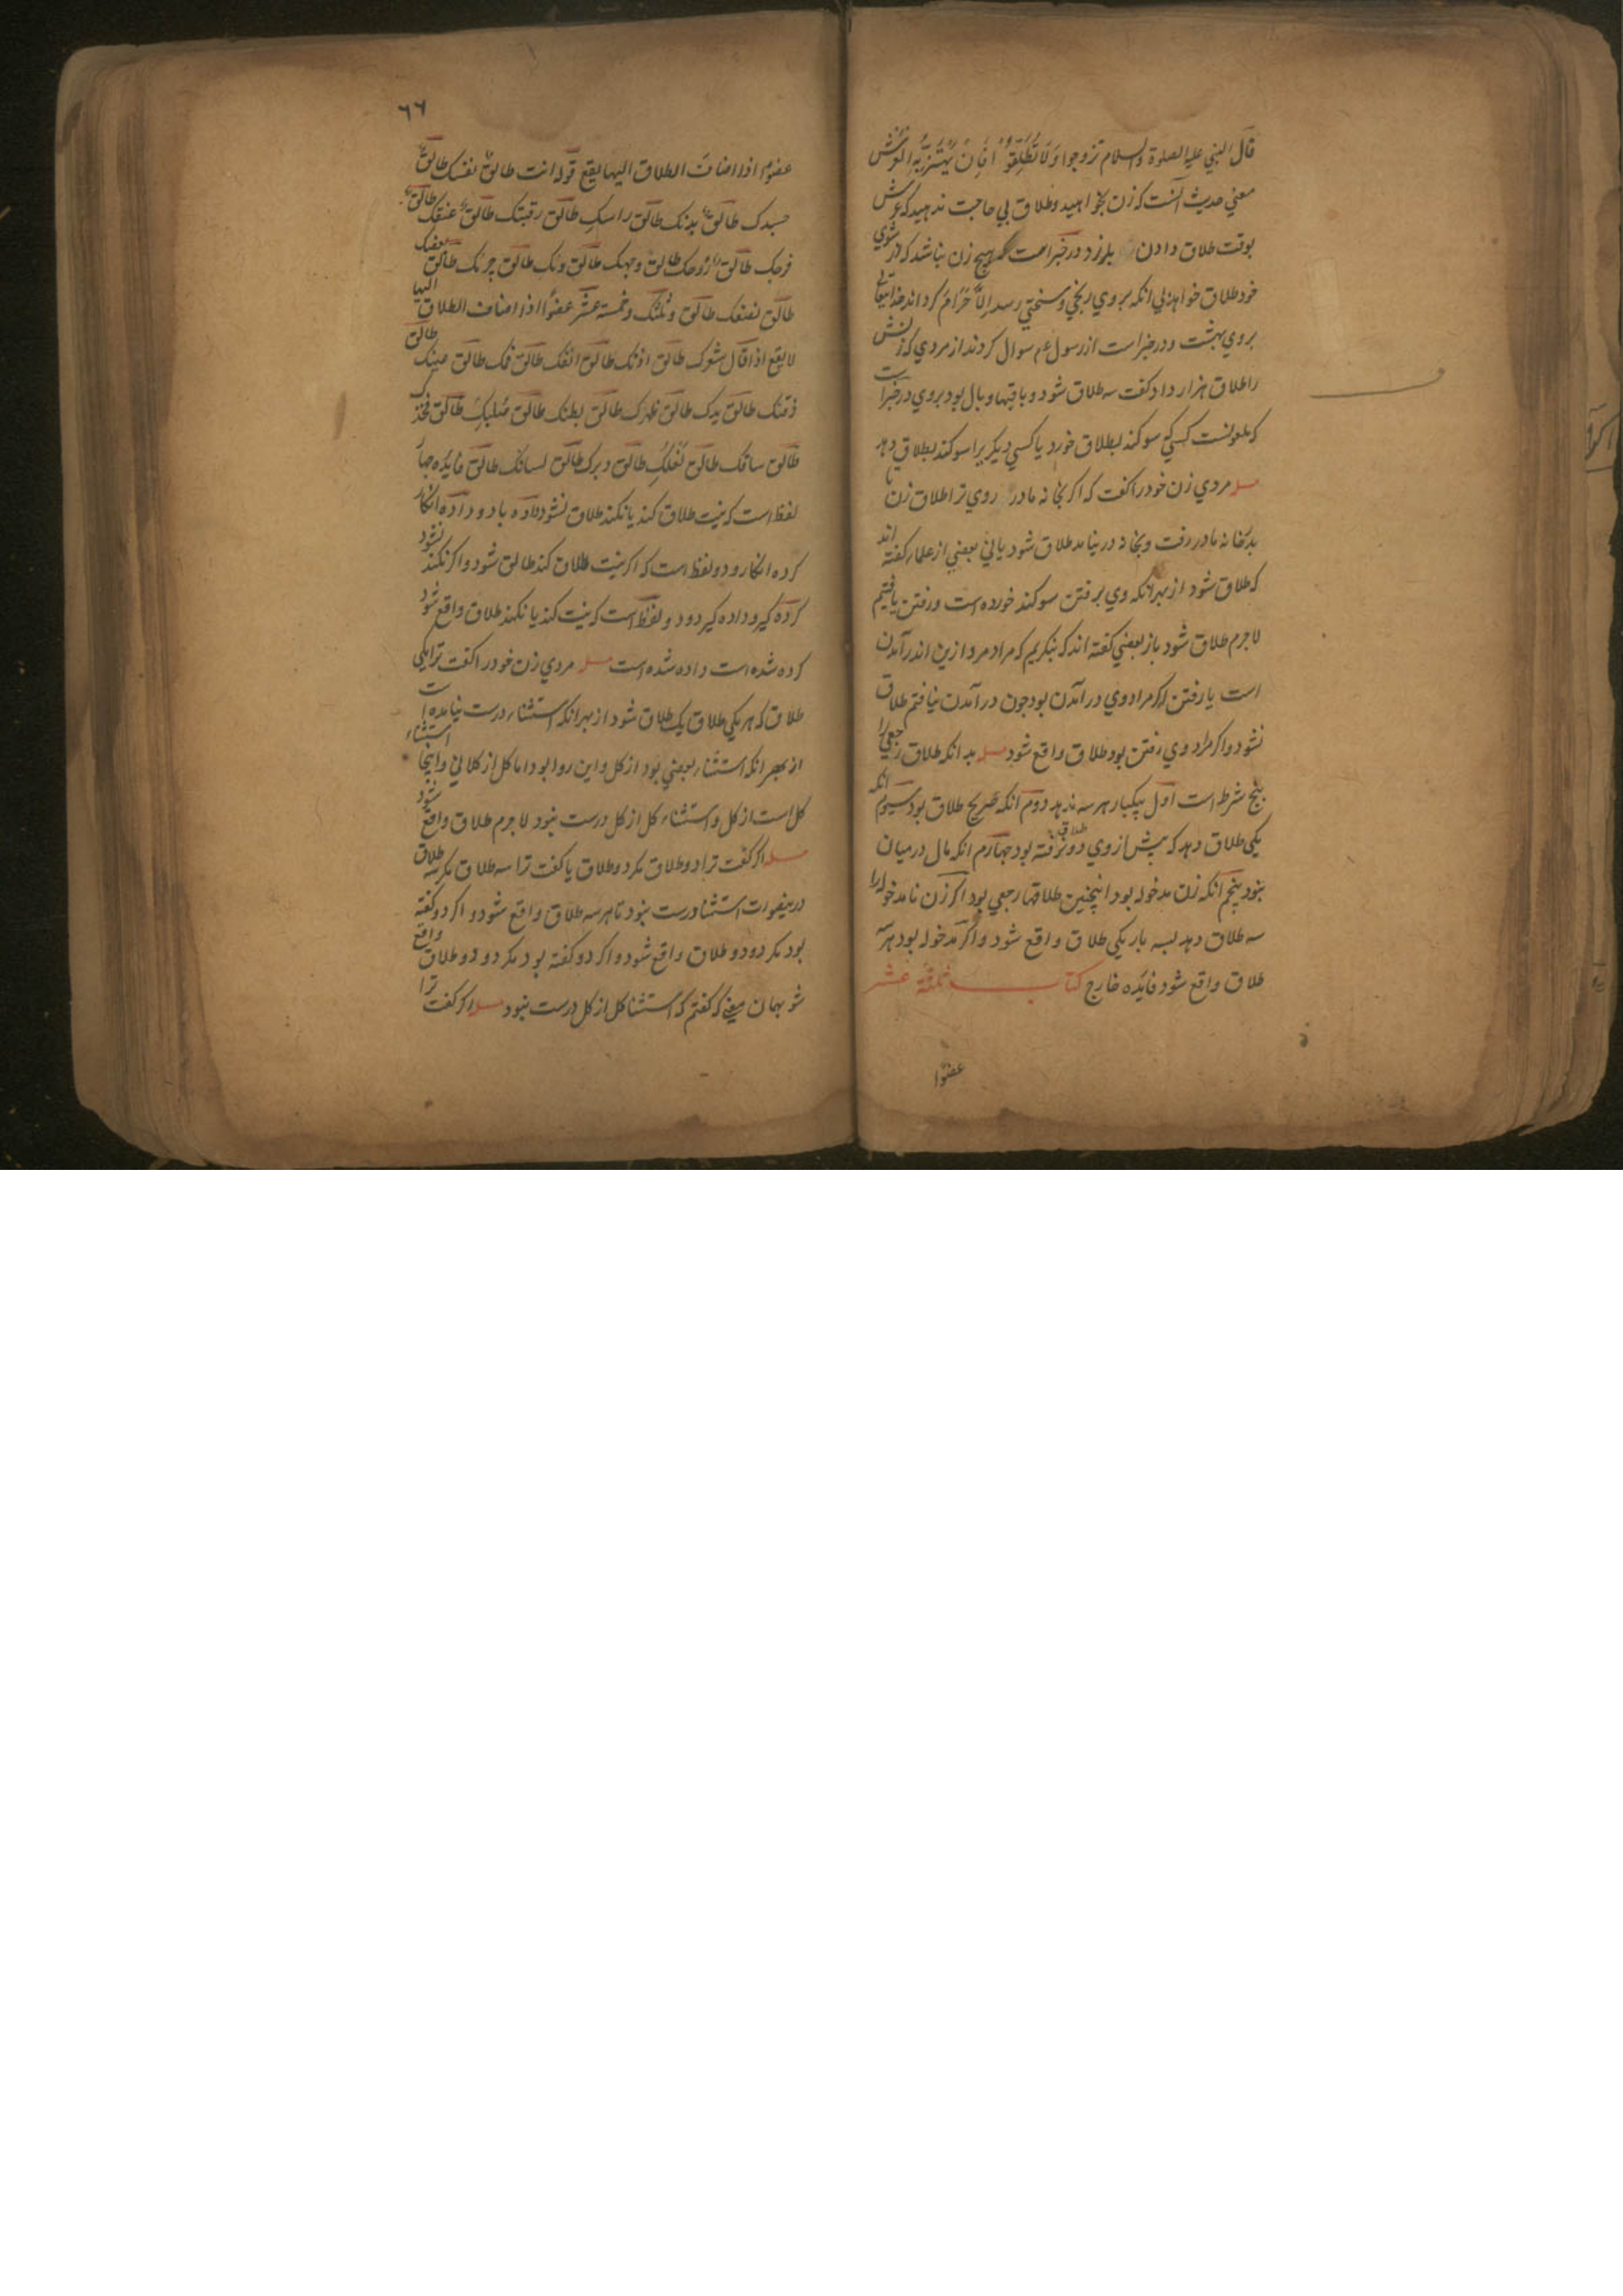 قال النبي عليه الصلوة والسلام تزوجوا ولا تطلقوا فان يهتز به العرش
معني حديث آنست كه زن بخواهيد وطلاق بي حاجت ندهيد كه عرش
بوقت طلاق دادن بلرزد در خبر است هيچ زن نباشد كه از شوي
خود طلاق خواهد بي آنكه بروي رنجي وسختي رسد الا حرام كرداند خدايتعالي
بروي بهشت ودر خبر است از رسول عم سوال كردند از مردي كه زنش
را طلاق هزار داد كفت سه طلاق شود وباقيها وبال بود بروي در خبر است
كه ملعونست كسي كه سوكند بطلاق خورد يا كسي ديكريرا سوكند بطلاق دهد
مسله مردي زن خود را كفت كه اكر بخانه مادر روي ترا طلاق زن تا
بدرخانه مادر رفت وبخانه در نيامد طلاق شود يا ني بعضي از علما كفته اند
كه طلاق شود از بهر انكه وي بر فتن سوكند خورده است ورفتن يافتيم
لاجرم طلاق شود باز بعضي كفته اند كه بنكريم كه مراد مرد ازين اندر آمدن
است يا رفتن اكر مراد وي در آمدن بود چون در آمدن نيافتم طلاق
نشود واكر مراد وي رفتن بود طلاق واقع شود مسله بدانكه طلاق رجعي را
پنج شرط است اول بيكبار هر سه ندهد دوم آنكه صريح طلاق بود سيوم آنكه
يكي طلاق دهد كه پيش از وي دو طلاق نرفته بود چهارم انكه مال درميان
نبود پنجم آنكه زن مدخوله بود اينچنين طلاقها رجعي بود اكر زن نامدخوله را
سه طلاق دهد بسه بار يكي طلاق واقع شود واكر مدخوله بود هر سه
طلاق واقع شود فايده خارج كتاب ثلثة عشر
عضوا
٦٦
عضوا اذا اضاف الطلاق اليها يقع قوله انت طالق نفسك طالق
جسدك طالق بدنك طالق راسك طالق رقبتك طالق عنقك طالق
فرجك طالق روحك طالق وجهك طالق طالق جزئك طالق بعضك
طالق نصفك طالق وثلثك وخمسة عشر عضوا اذا اضاف الطلاق اليها
لا يقع اذا قال شعرك طالق اذنك طالق انفك طالق فمك طالق عينك طالق
ذقنك طالق يدك طالق ظهرك طالق بطنك طالق صلبك طالق فخذك
طالق ساقك طالق طالق دبرك طالق لسانك طالق فايده چهار
لفظ است كه نيت طلاق كند يا نكند طلاق نشود داده باد وداده انكار
كرده انكار ودو لفظ است كه اكر نيت طلاق كند طالق شود واكر نكند نشود
كرده كير وداده كير ودو لفظ است كه نيت كند يا نكند طلاق واقع شود
كرده شده است داده شده است مسله مردي زن خود را كفت ترا يكي
طلاق كه هر يكي طلاق يك طلاق شود از بهر انكه استثناء درست نيامده است
از بهر انكه استثناء بعضي بود از كل واين روا بود اما كل از كل ني وايچا استثناء
كل است از كل واستثناء كل از كل درست نبود لاجرم طلاق واقع شود
مسله اكر كفت ترا دو طلاق مكر دو طلاق يا كفت ترا سه طلاق مكر سه طلاق
درينصورت استثنا درست نبود تا هر سه طلاق واقع شود واكر دو كفته
بود مكر دو دو طلاق واقع شود واكر دو كفته بود مكر دو دو طلاق واقع
شو بهمان معني كه كفتم كه استثنا كل از كل درست نبود مسله اكر كفت ترا